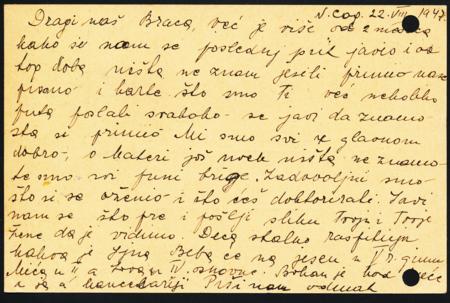 N. Cap. 22. VIII 1947.
Dragi naš Braco, već je više od 2 meseca
kako si nam se poslednj put javio i od
tog doba ništa ne znam jesi li primio naše
pismo i karte što smo Ti već nekoliko
puta poslali svakako se javi da znamo
šta si primio Mi smo svi u glavnom
dobro, o Materi još uvek ništa ne znamo
te smo svi puni brige. Zadovoljni smo
što si se oženio i što ćeš doktorirati. Javi
nam se što pre i pošlji sliku Tvoju i Tvoje
žene da je vidimo. Deca stalno raspituju
kakva je Beba će na jesen u V r. gimn
Mića u II a u IV. osnovne. je kod kuće
i u kancelariji Piši nam odmah